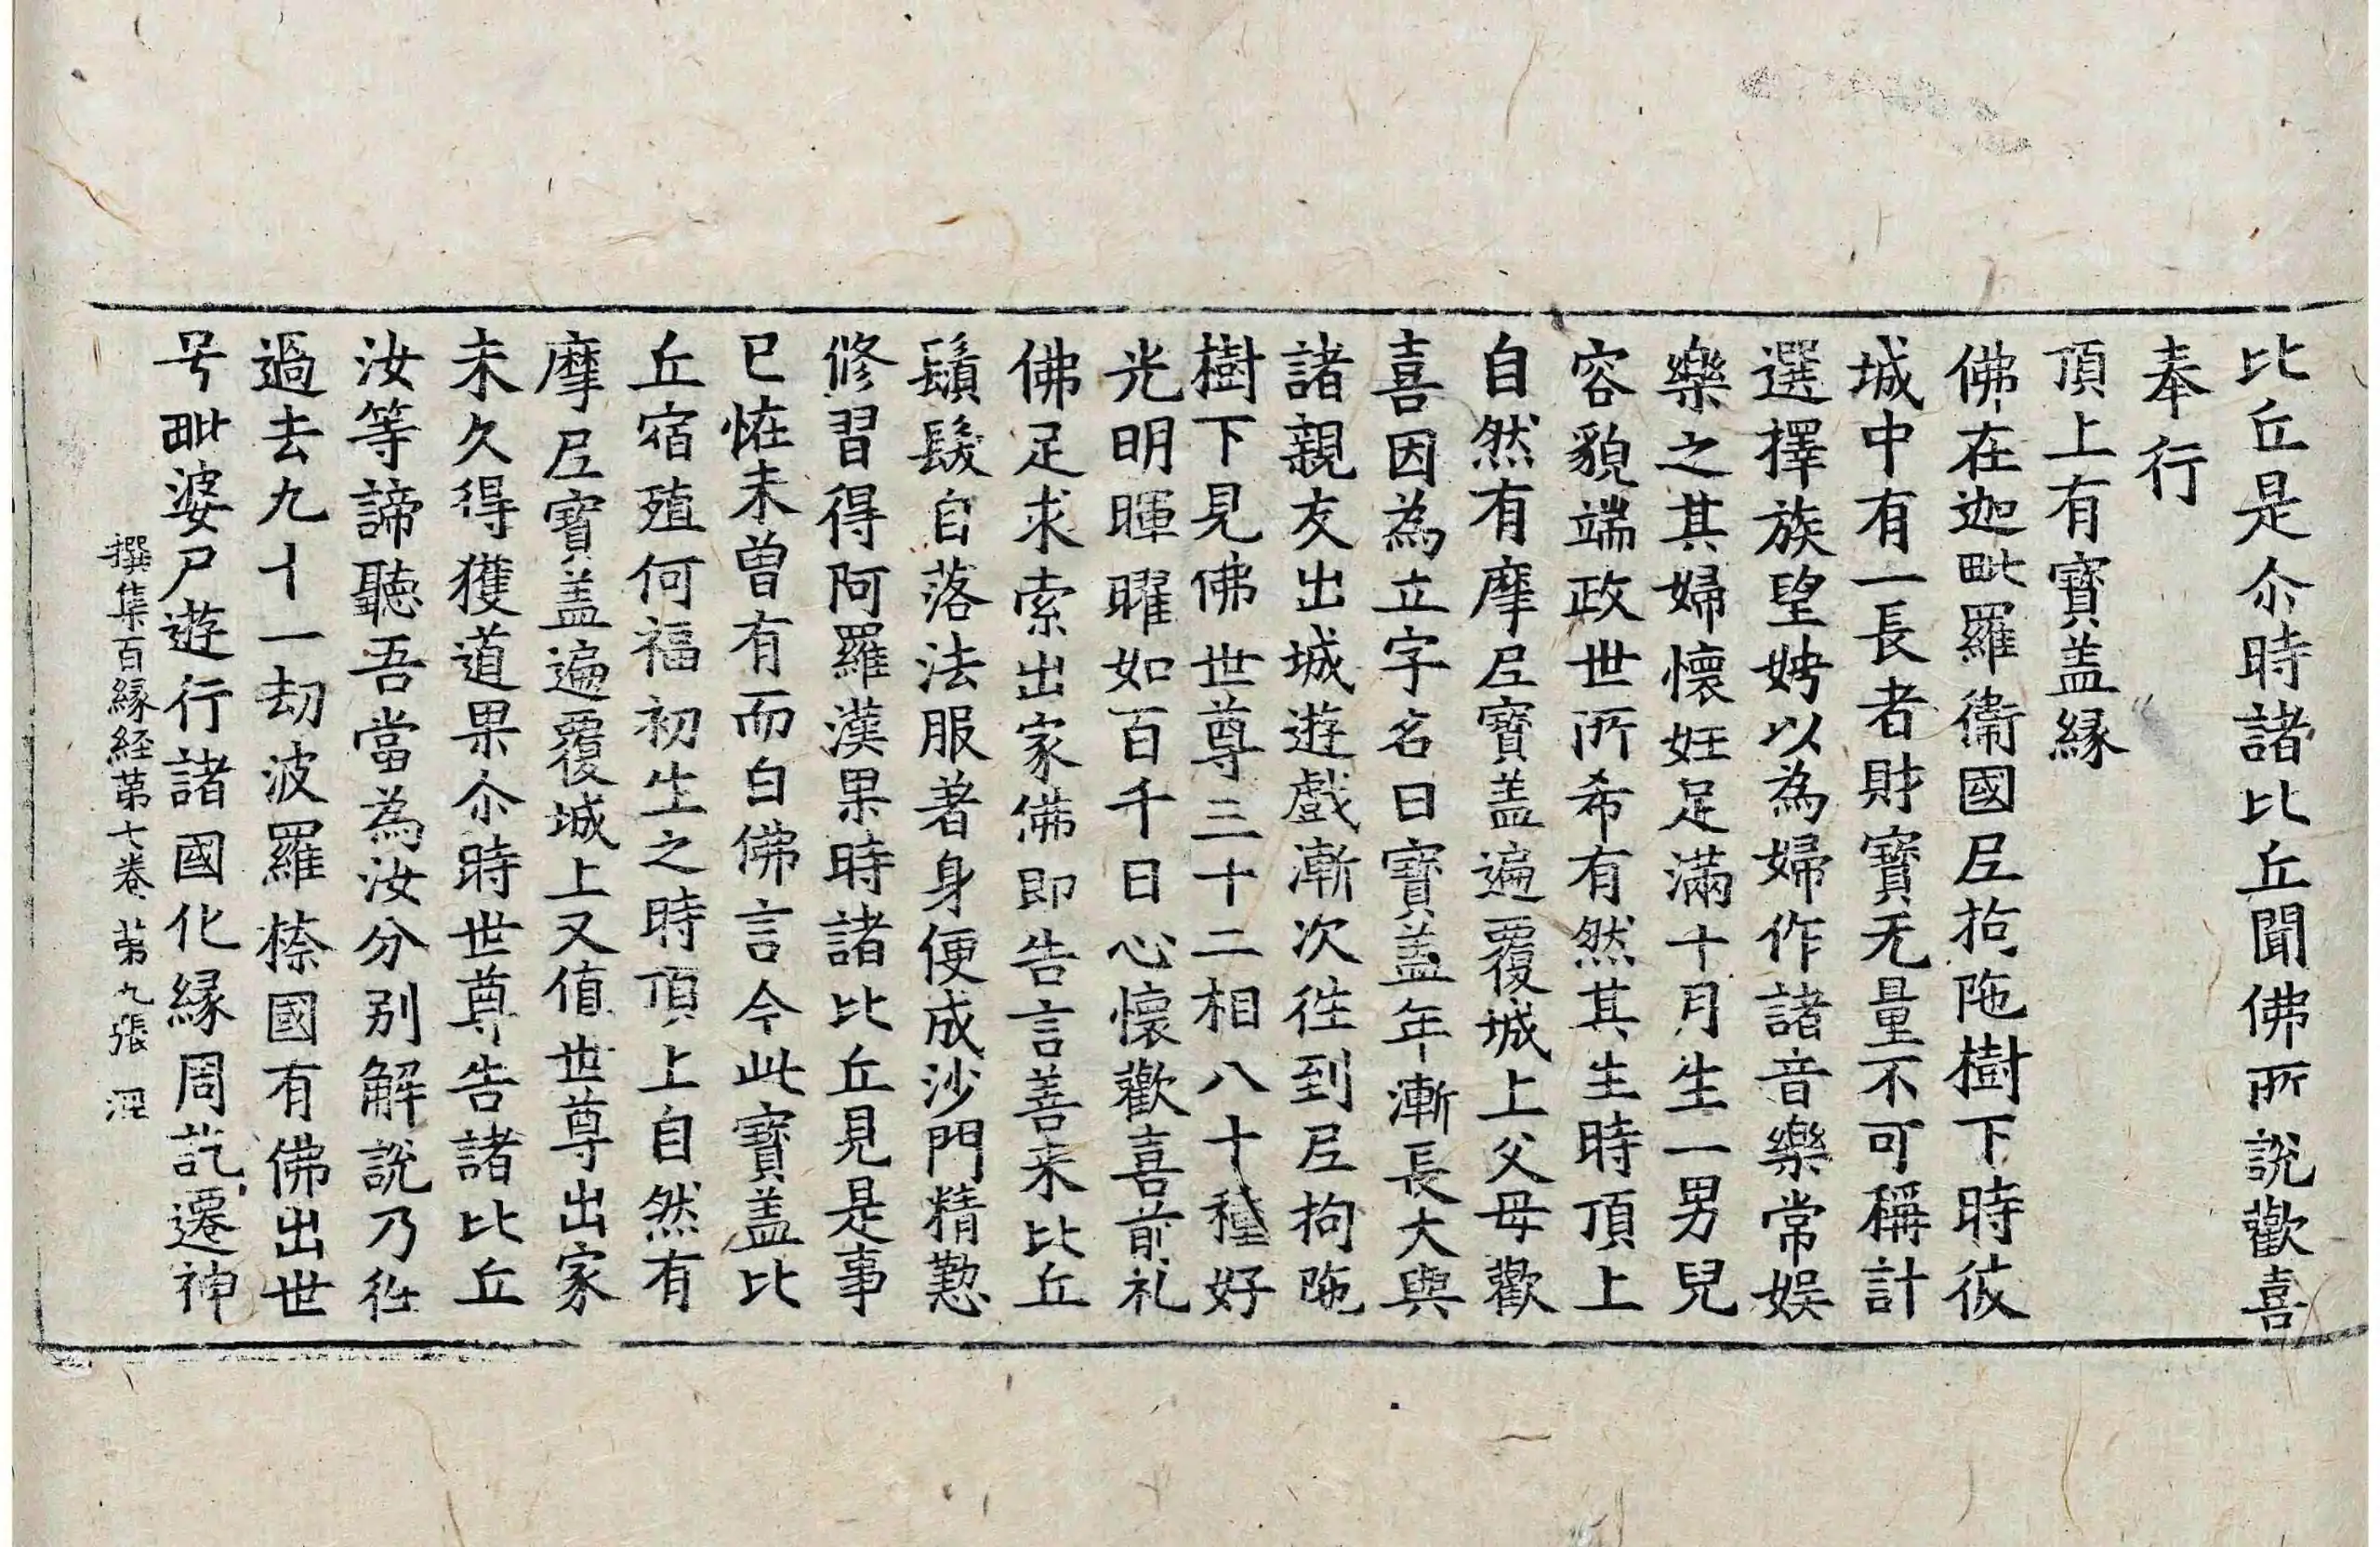 比丘是尒時諸比丘聞佛所說歡喜
奉行
頂上有寶盖縁
佛在迦毗羅衛國尼拘陁樹下時彼
城中有一長者財寶无量不可稱計
選擇族望娉以為婦作諸音樂常娛
樂之其婦懷妊足滿十月生一男兒
容貌端政世所希有然其生時頂上
自然有摩尼寶盖遍覆城上父母歡
喜因為立字名曰寶盖年漸長大與
諸親友出城遊戲漸次往到尼拘陁
樹下見佛世尊三十二相八十種好
光明暉曜如百千日心懷歡喜前礼
佛足求索出家佛即告言善来比丘
鬚髮自落法服著身便成沙門精懃
修習得阿羅漢果時諸比丘見是事
已恠未曾有而白佛言今此寶盖比
丘宿殖何福初生之時頂上自然有
摩尼寶盖遍覆城上又值世尊出家
未久得獲道果尒時世尊告諸比丘
汝等諦聽吾當為汝分别解說乃往
過去九十一劫波羅㮈國有佛出世
号毗婆尸遊行諸國化縁周訖遷神
撰集百縁経第七卷 第九張 淫